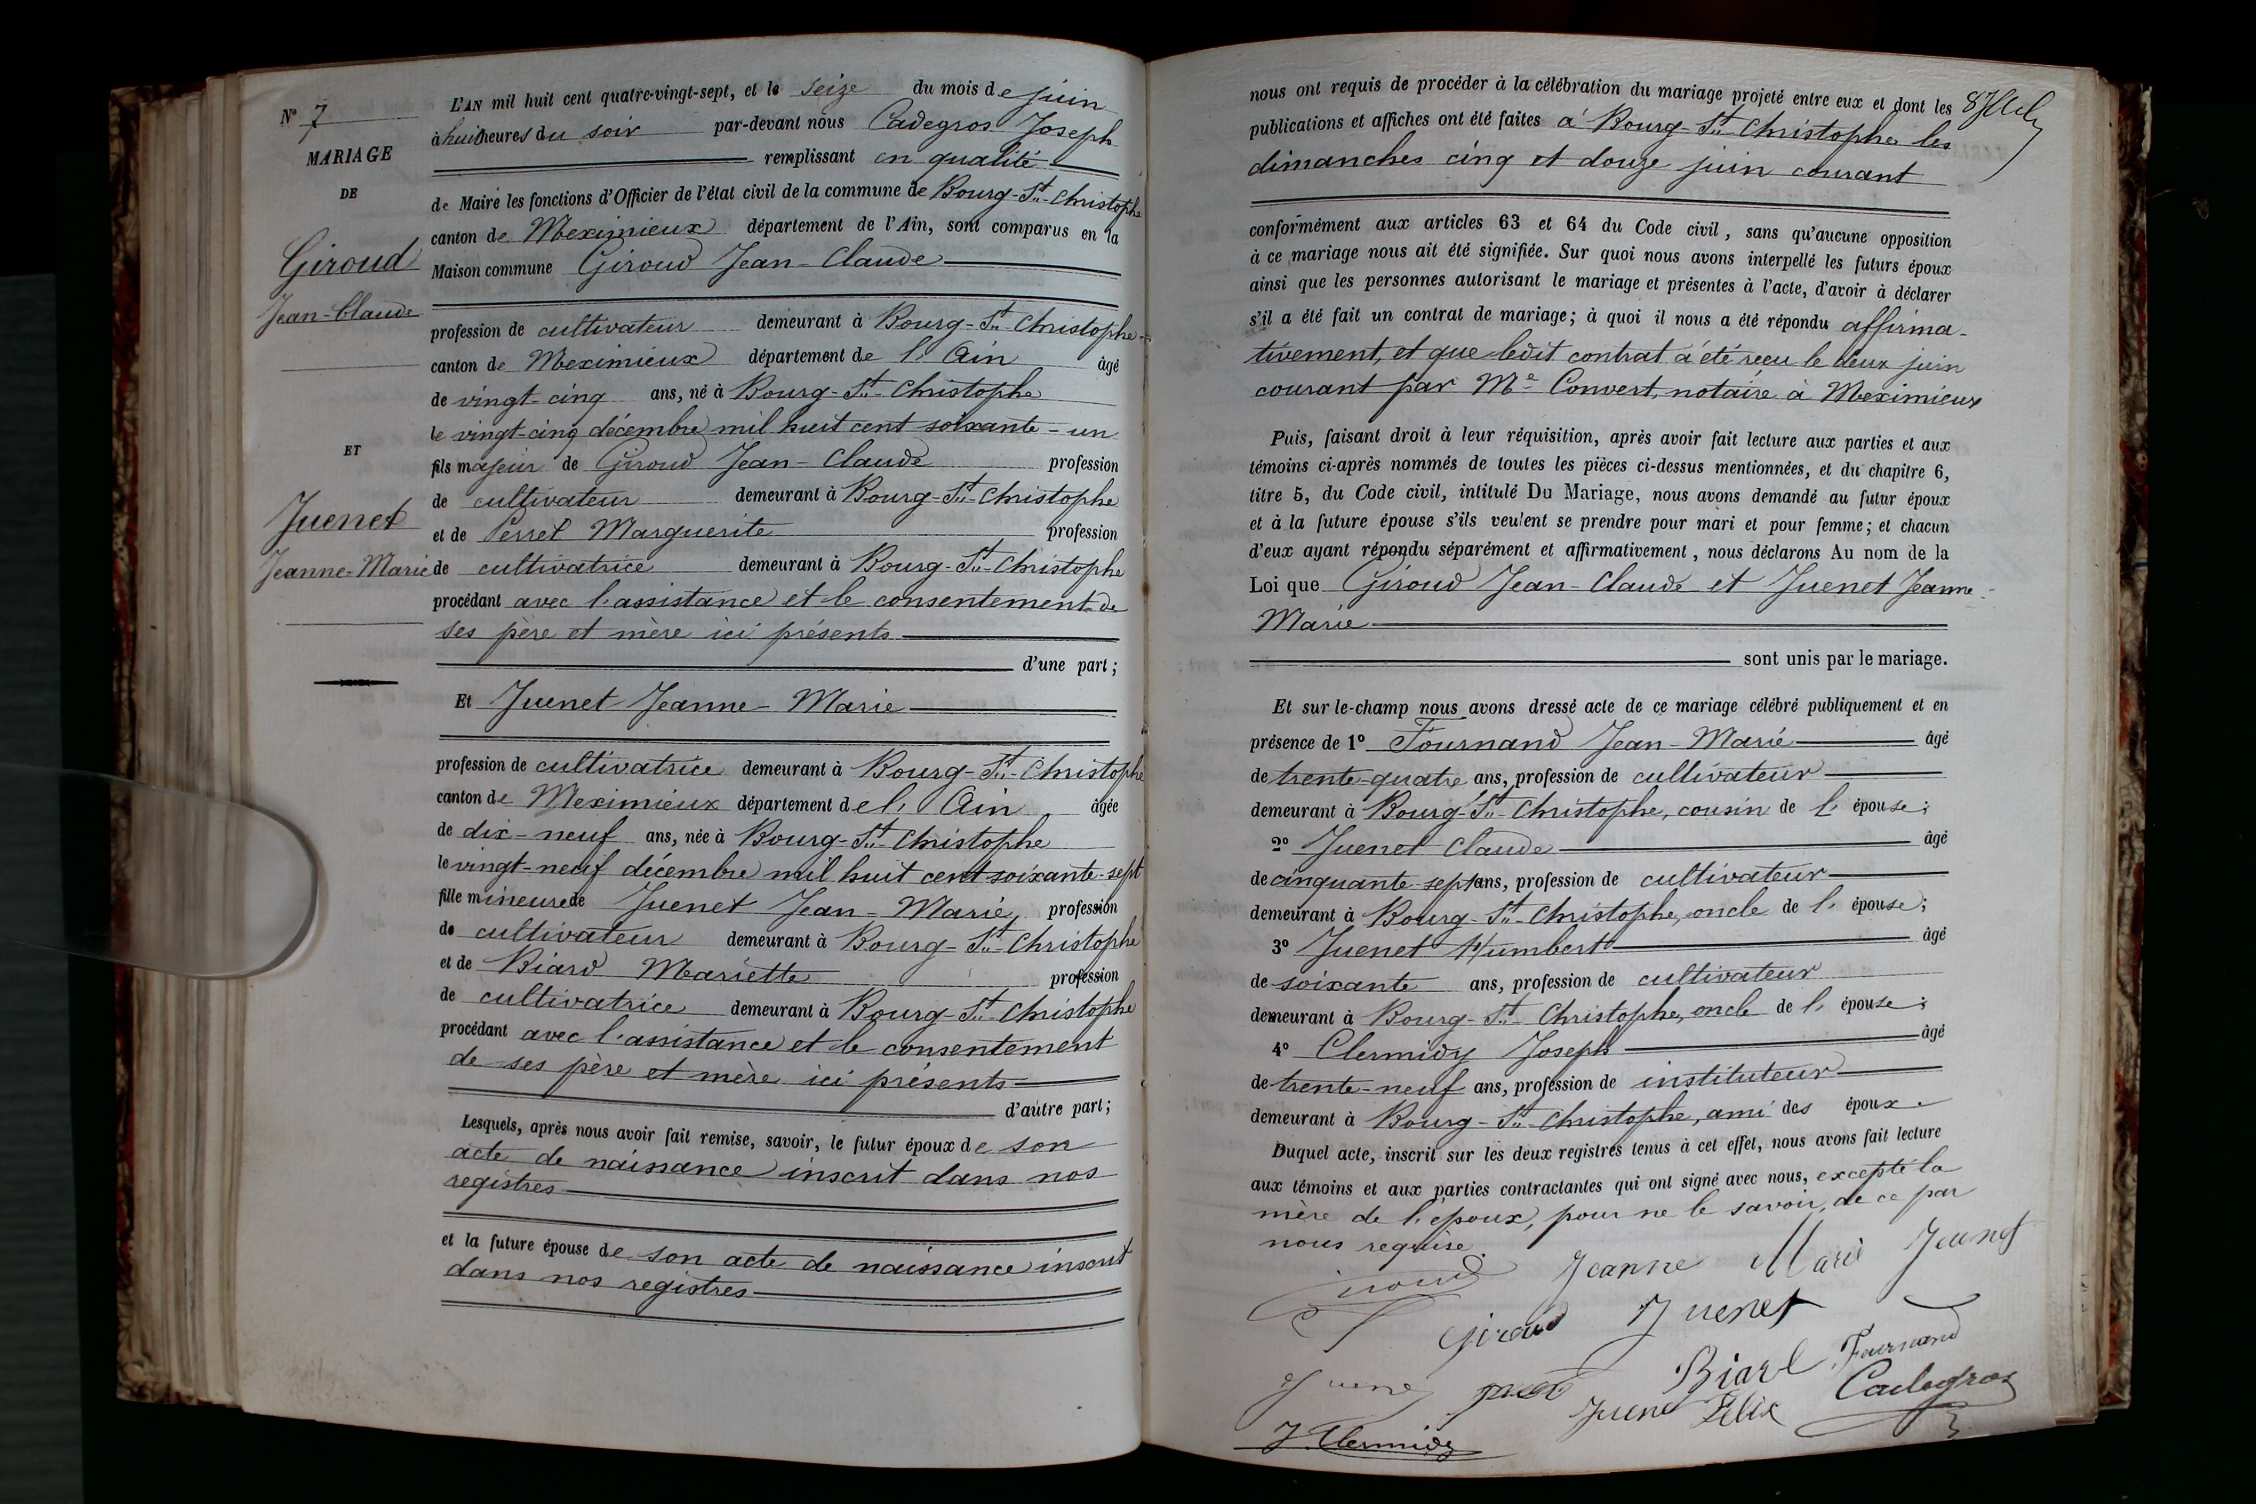 N° 7
MARIAGE
DE
Giroud
Jean-Claude
ET
Juenet
Jeanne-Marie
L'AN mil huit cent quatre-vingt-sept, et le seize du mois de juin
à huit heures du soir par-devant nous Cadegros Joseph
remplissant en qualité
de Maire les fonctions d'Officier de l'état civil de la commune de Bourg-St-Christophe
canton de Meximieux département de l'Ain, sont comparus en la
Maison commune Giroud Jean-Claude
profession de cultivateur demeurant à Bourg-St-Christophe
canton de Meximieux département de l'Ain âgé
de vingt-cinq ans, né à Bourg-St-Christophe
le vingt-cinq décembre mil huit cent soixante-un
fils majeur de Giroud Jean-Claude profession
de cultivateur demeurant à Bourg-St-Christophe
et de Perret Marguerite profession
de cultivatrice demeurant à Bourg-St-Christophe
procédant avec l'assistance et le consentement de
ses père et mère ici présents
d'une part;
Et Juenet Jeanne-Marie
profession de cultivatrice demeurant à Bourg-St-Christophe
canton de Meximieux département de l'Ain âgée
de dix-neuf ans, née à Bourg-St-Christophe
le vingt-neuf décembre mil huit cent soixante-sept
fille mineure de Juenet Jean-Marie, profession
de cultivateur demeurant à Bourg-St-Christophe
et de Biard Mariette profession
de cultivatrice demeurant à Bourg-St-Christophe
procédant avec l'assistance et le consentement
de ses père et mère ici présents
d'autre part;
Lesquels, après nous avoir fait remise, savoir, le futur époux de son
acte de naissance inscrit dans nos
registres
et la future épouse de son acte de naissance inscrit
dans nos registres
nous ont requis de procéder à la célébration du mariage projeté entre eux et dont les
publications et affiches ont été faites à Bourg-St-Christophe les
dimanches cinq et douze juin courant
conformément aux articles 63 et 64 du Code civil, sans qu'aucune opposition
à ce mariage nous ait été signifiée. Sur quoi nous avons interpellé les futurs époux
ainsi que les personnes autorisant le mariage et présentes à l'acte, d'avoir à déclarer
s'il a été fait un contrat de mariage; à quoi il nous a été répondu affirma-
tivement, et que ledit contrat a été reçu le deux juin
courant par Me Convert, notaire à Meximieux
Puis, faisant droit à leur réquisition, après avoir fait lecture aux parties et aux
témoins ci-après nommés de toutes les pièces ci-dessus mentionnées, et du chapitre 6,
titre 5, du Code civil, intitulé Du Mariage, nous avons demandé au futur époux
et à la future épouse s'ils veulent se prendre pour mari et pour femme; et chacun
d'eux ayant répondu séparément et affirmativement, nous déclarons Au nom de la
Loi que Giroud Jean-Claude et Juenet Jeanne-
Marie
sont unis par le mariage.
Et sur-le-champ nous avons dressé acte de ce mariage célébré publiquement et en
présence de 1° Fournand Jean-Marie âgé
de trente-quatre ans, profession de cultivateur
demeurant à Bourg-St-Christophe, cousin de l'épouse;
2° Juenet Claude âgé
de cinquante-sept ans, profession de cultivateur
demeurant à Bourg-St-Christophe, oncle de l'épouse;
3° Juenet Humbert âgé
de soixante ans, profession de cultivateur
demeurant à Bourg-St-Christophe, oncle de l'épouse;
4° Clermidy Joseph âgé
de trente-neuf ans, profession de instituteur
demeurant à Bourg-St-Christophe, ami des époux.
Duquel acte, inscrit sur les deux registres tenus à cet effet, nous avons fait lecture
aux témoins et aux parties contractantes qui ont signé avec nous, excepté la
mère de l'époux, pour ne le savoir, de ce par
nous requise.
Jeanne Marie Jeunet
Giroud Juenet
Biard Fournand
Juene Félix Cadegros
J. Clermidy